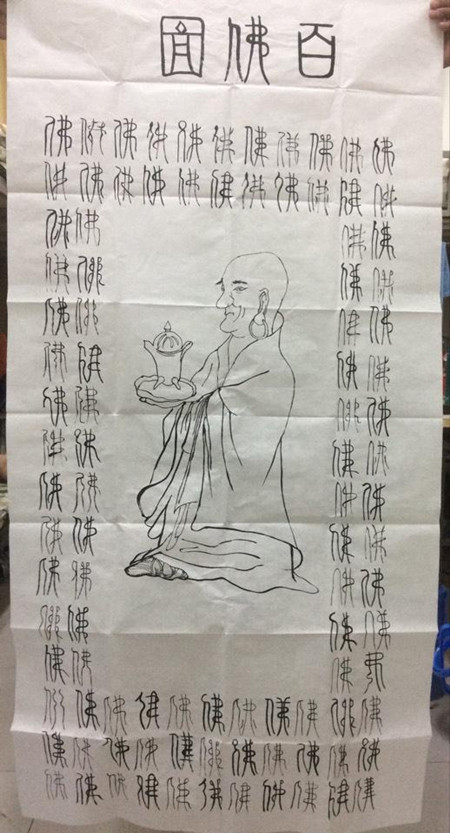 百佛圖
佛佛佛佛佛佛佛佛佛佛佛
佛佛佛佛佛佛佛佛佛佛佛
佛佛佛佛
佛佛佛佛
佛佛佛佛
佛佛佛佛
佛佛佛佛
佛佛佛佛
佛佛佛佛
佛佛佛佛
佛佛佛佛
佛佛佛佛
佛佛佛佛
佛佛佛佛佛佛佛佛佛佛佛
佛佛佛佛佛佛佛佛佛佛佛
佛佛佛佛佛佛佛佛佛佛佛